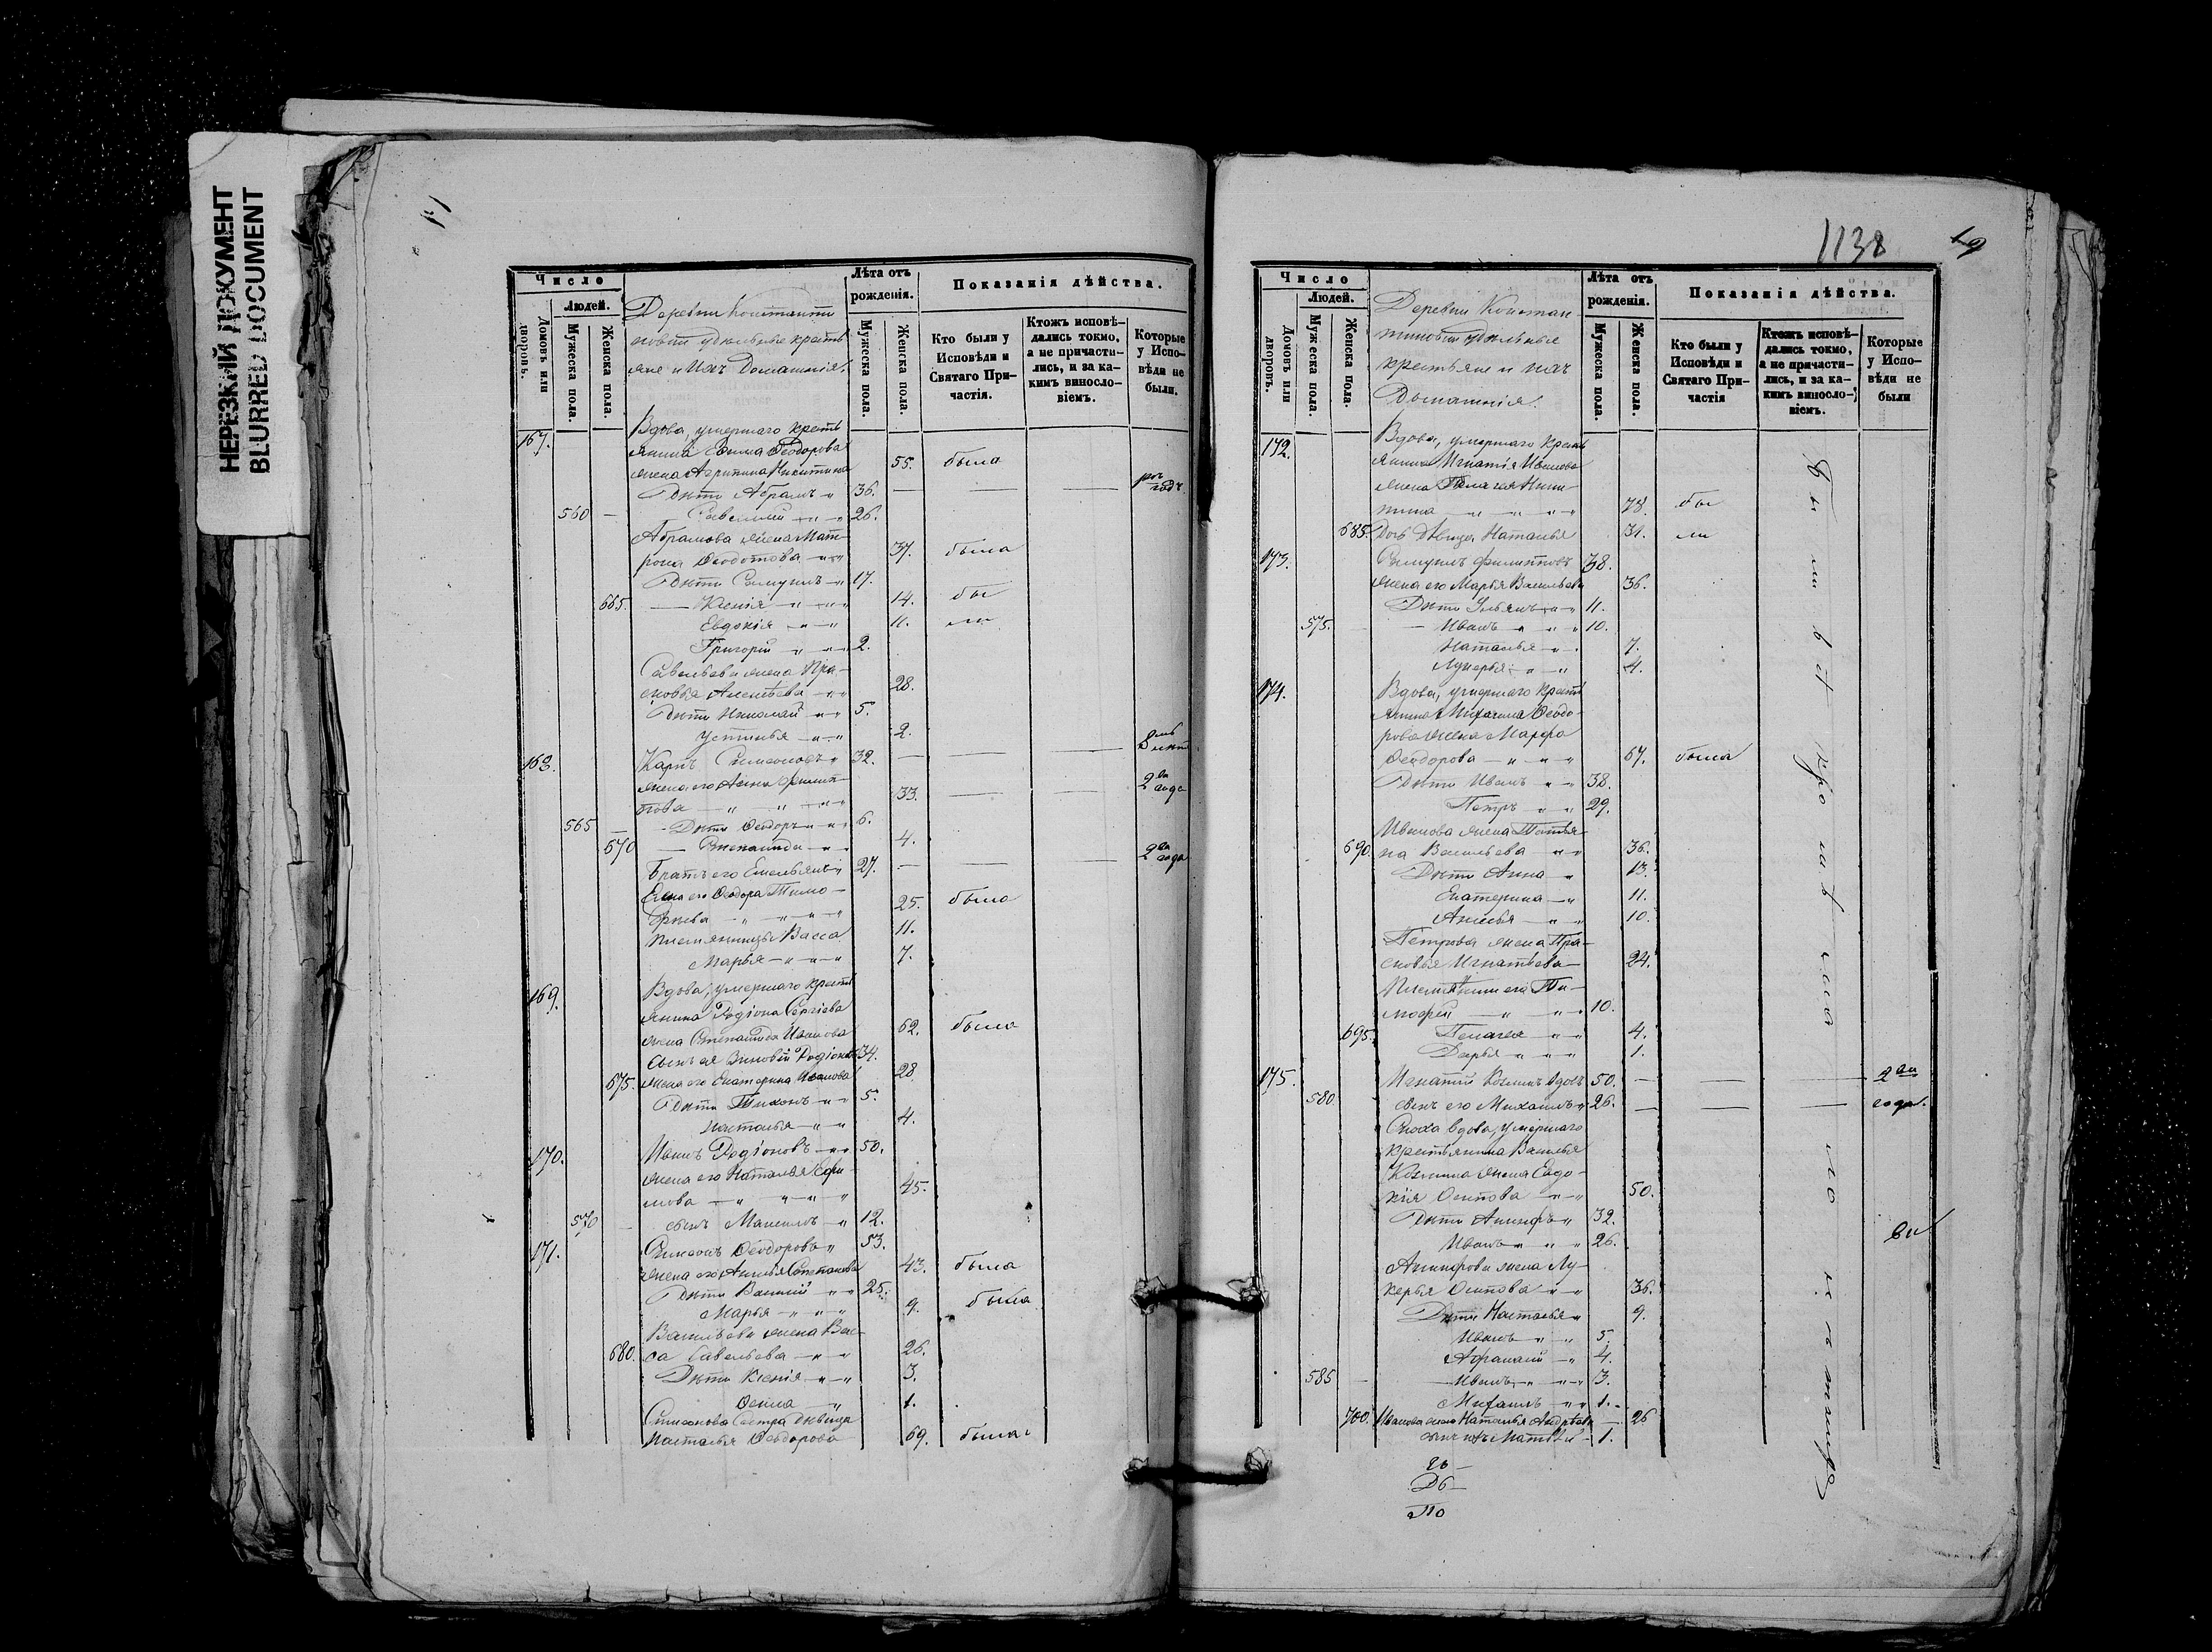 НЕРЕЗКИЙ ДОКУМЕНТ
BLURRED DOCUMENT
Число
Людей.
Домовъ или дворовъ.
Мужеска пола.
Женска пола.
Деревни Константи
новой удѣльные кресть
яне и ихъ Домашнія.
Лѣта отъ рожденія.
Мужеска пола.
Женска пола.
Показанія дѣйства.
Кто были у Исповѣди и Святаго Причастія.
Ктожъ исповѣдались токмо, а не причастились, и за какимъ винословіемъ.
Которые у Исповѣди не были.
167. Вдова, умершаго кресть
янина Ѳеодорова
жена Агрипина Никитина 55. была
Дѣти Абрамъ 36.
560 Савелий 26.
Абрамова жена Мат-
рона Ѳеодотова 37. была
Дѣти Самуилъ 17.
665. Ксенія 14. бы
Евдокія 11. ли
Григорій 2.
Савельева жена Пра-
сковья Алексѣева 28.
Дѣти Николай 5.
Устинья 2.
168. Карпъ Симеоновъ 32.
жена его Анна Филип-
пова 33. 2 ва года
565 Дѣти Ѳеодоръ 6.
670 Степанида 4.
Братъ его Емельянъ 27. 2 ва года
Жена его Ѳеодора Тимо-
фѣева 25. была
племянницы Васса 11.
Марья 7.
169. Вдова, умершаго кресть
янина Родіона Сергіева
жена Степанида Иванова 62. была
сынъ ея Зиновій Родіоновъ 34.
675. жена его Екатерина Иванова 28
Дѣти Тихонъ 5.
Наталья 4.
170. Иванъ Родіоновъ 50.
жена его Наталья Ефи-
мова 45.
570 сынъ Мануилъ 12.
171. Симеонъ Ѳеодоровъ 53.
жена его Анисья Степанова 43. была
Дѣти Василій 25.
Марья 9. была
Васильева жена Вас-
680. са Савельева 26.
Дѣти Ксенія 3.
Ѳекла 1.
Симеонова Сестра дѣвица
Наталья Ѳеодорова 69. была
1138
Число
Людей.
Домовъ или дворовъ.
Мужеска пола.
Женска пола.
Деревни Констан
тиновой удѣльные
крестьяне и ихъ
Домашнія.
Лѣта отъ рожденія.
Мужеска пола.
Женска пола.
Показанія дѣйства.
Кто были у Исповѣди и Святаго Причастія
Ктожъ исповѣдались токмо, а не причастились, и за какимъ винословіемъ.
Которые у Исповѣди не были
172. Вдова, умершаго кресть
янина Игнатія Иванова
жена Пелагея Ники-
тина 78. бы
685. Дочь дѣвица Наталья 31. ли
173. Самуилъ Филипповъ 38.
жена его Марья Васильева 36.
Дѣти Ульянъ 11.
575. Иванъ 10.
Наталья 7.
Лукерья 4.
174. Вдова, умершаго кресть
янина Михаила Ѳеодо-
рова жена Марфа
Ѳеодорова 67. была
Дѣти Иванъ 38.
Петръ 29.
Иванова жена Татья-
690. на Васильева 36.
Дѣти Анна 13.
Екатерина 11.
Анисья 10.
Петрова жена Пра-
сковья Игнатьева 24.
Племянники его Ти-
мофей 10.
695. Пелагея 4.
Дарья 1.
175. Игнатій Козминъ вдовъ 50. 2 ва
580 сынъ его Михаилъ 26. года.
Сноха вдова, умершаго
крестьянина Василья
Козмина жена Евдо-
кія Осипова 50.
Дѣти Анинфъ 32.
Иванъ 26.
Анинфова жена Лу-
керья Осипова 36.
Дѣти Наталья 9.
Иванъ 5.
Афанасій 4.
585 Иванъ 3.
Михаилъ 1.
700. Иванова жена Наталья Андрѣева 26
сынъ ихъ Матвѣй 1.